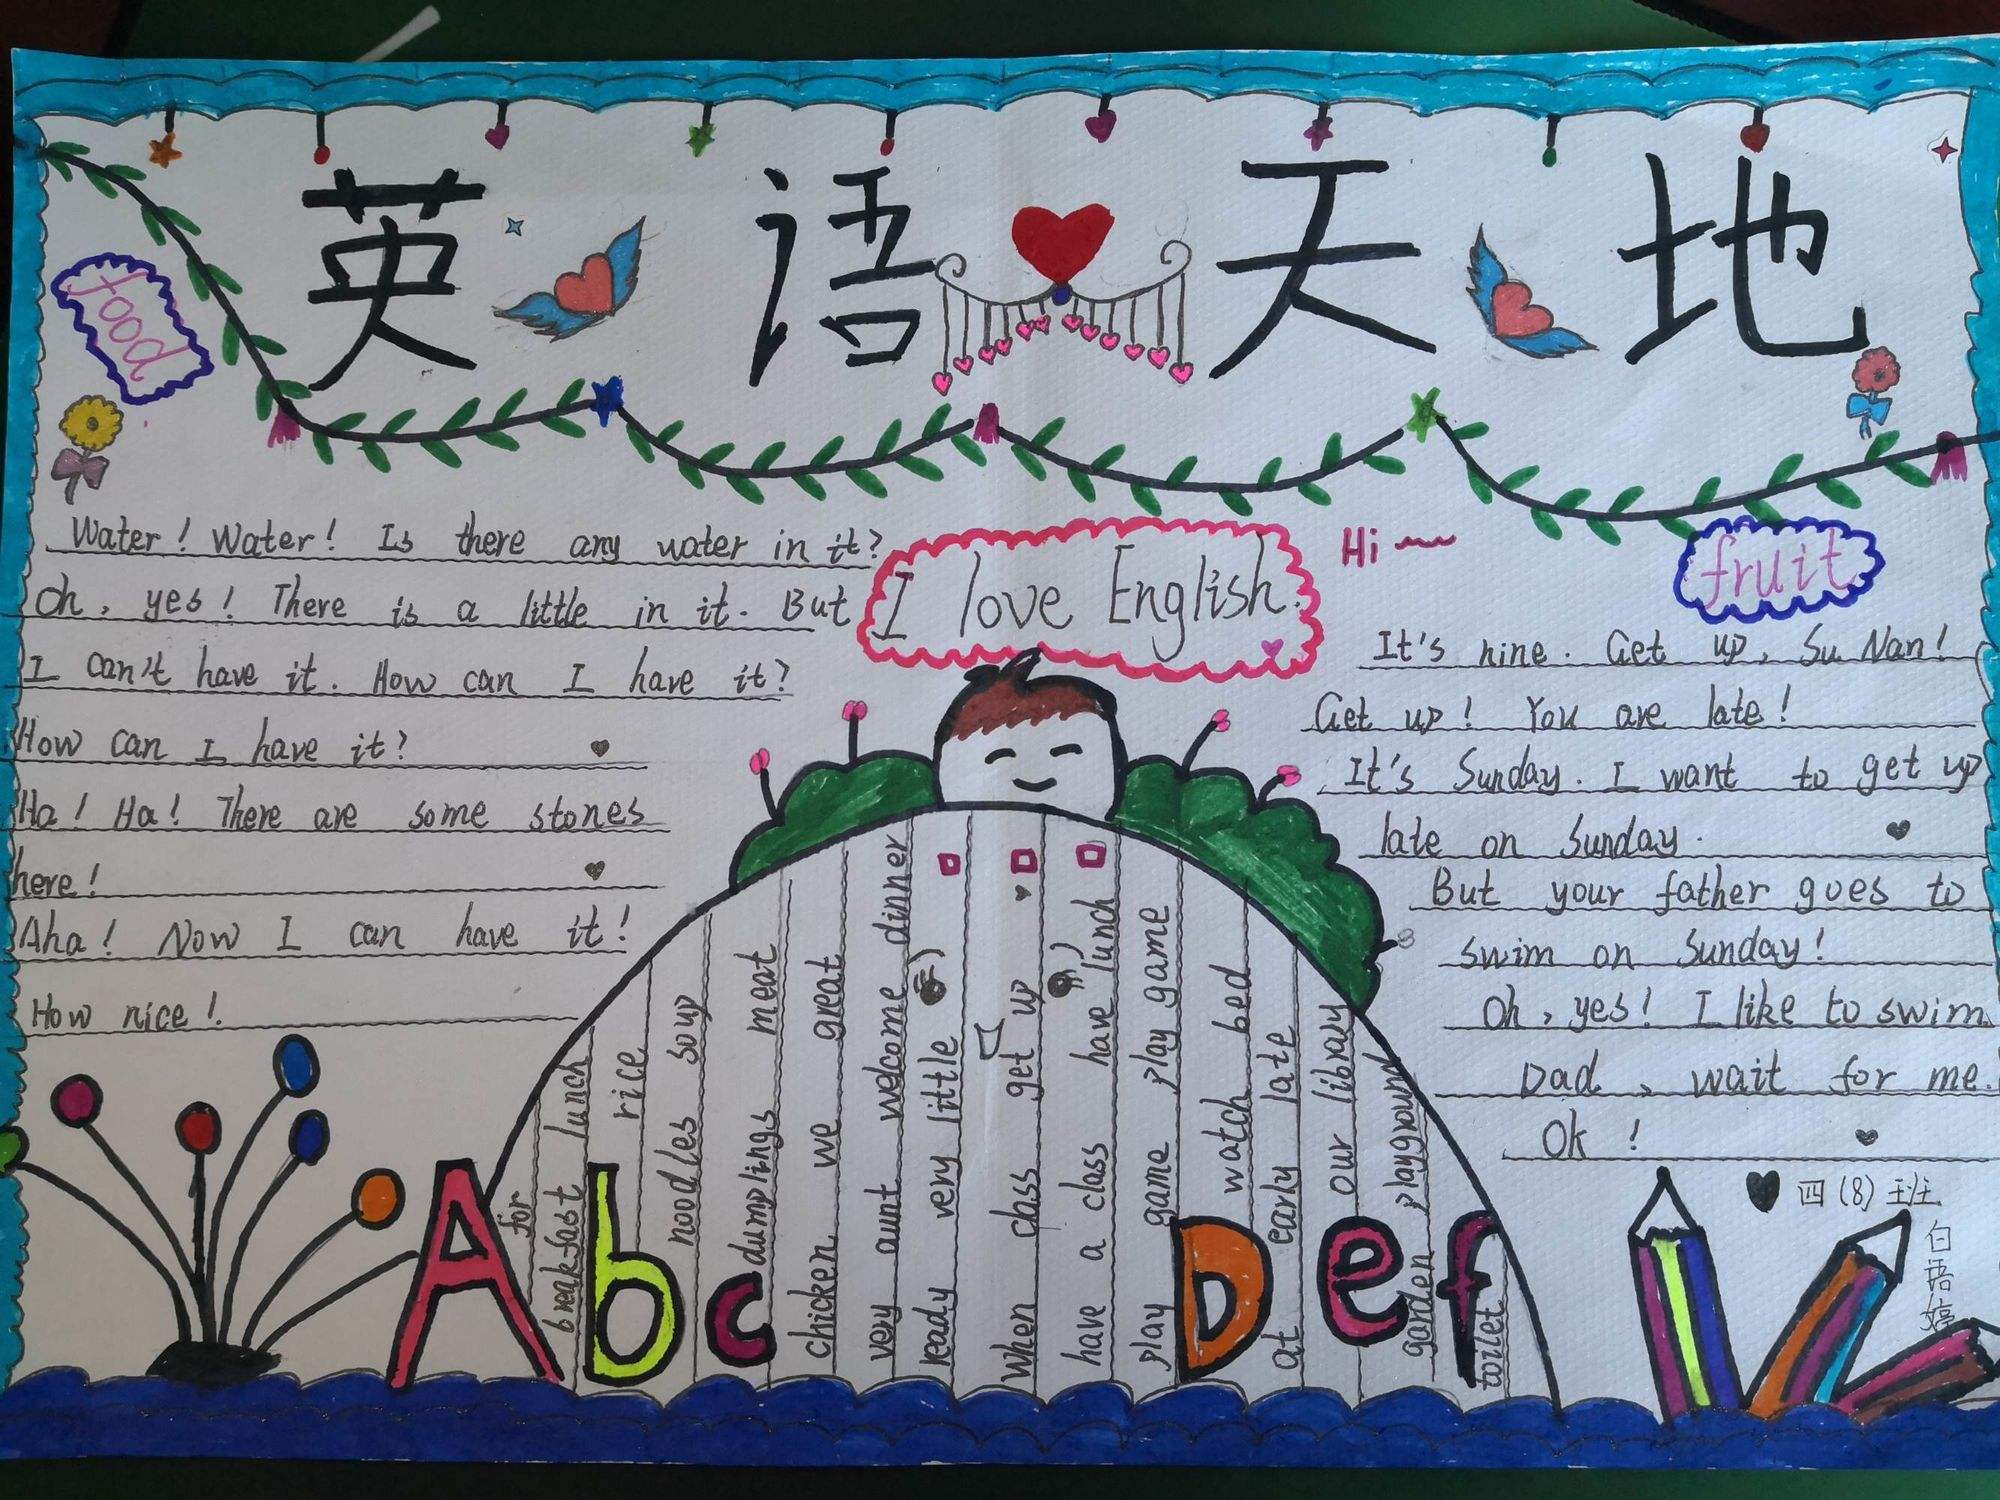 英语天地
food
Water! Water! Is there any water in it?
Oh, yes! There is a little in it. But
I can't have it. How can I have it?
How can I have it?
Ha! Ha! There are some stones
here!
Aha! Now I can have it!
How nice!
I love English.
Hi
fruit
It's nine. Get up, Su Nan!
Get up! You are late!
It's Sunday. I want to get up
late on Sunday.
But your father goes to
swim on Sunday!
Oh, yes! I like to swim.
Dad, wait for me.
Ok!
for
breakfast lunch
rice
noodles soup
dumplings meat
chicken we great
very aunt welcome dinner
ready very little
When class get up
have a class have lunch
play game play game
watch bed
at early late
our library
garden playground
toilet
A b c D e f
四(8)班
白语婷